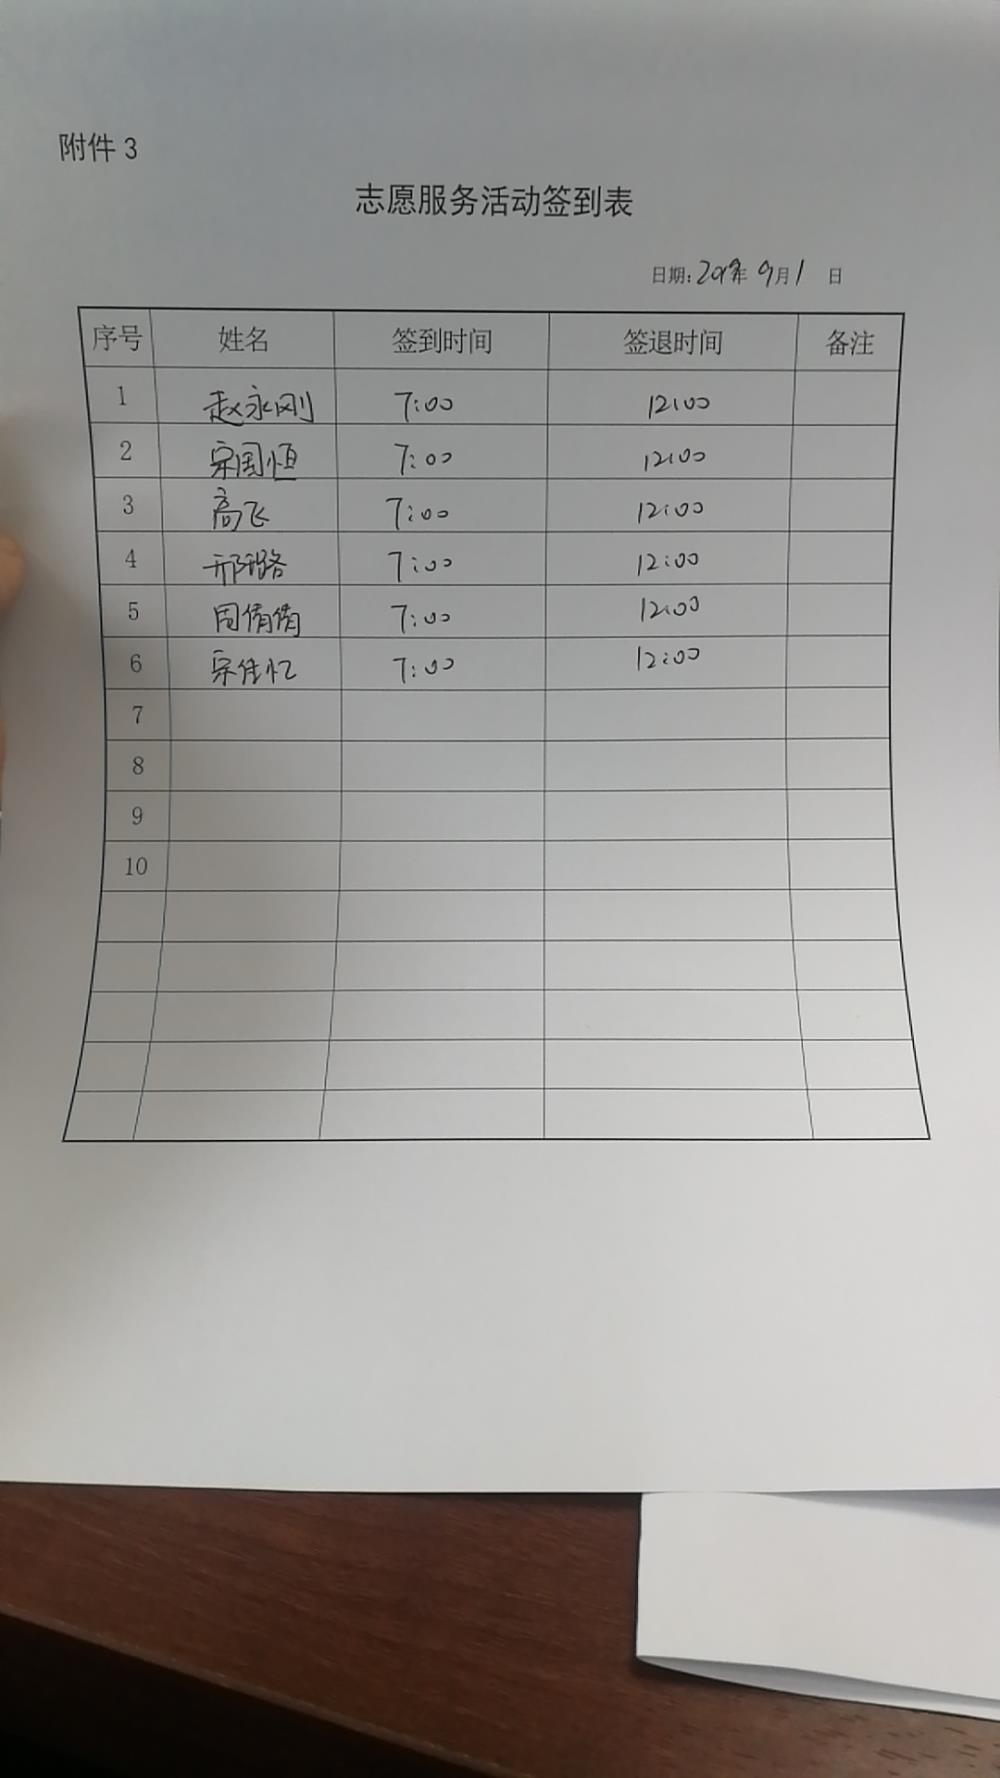 附件 3
志愿服务活动签到表
日期: 年 9月1 日
序号 姓名 签到时间 签退时间 备注
1 赵永刚 7:00 12:00
2 宗国恒 7:00 12:00
3 高飞 7:00 12:00
4 邢璐 7:00 12:00
5 周倩倩 7:00 12:00
6 宗佳忆 7:00 12:00
7
8
9
10